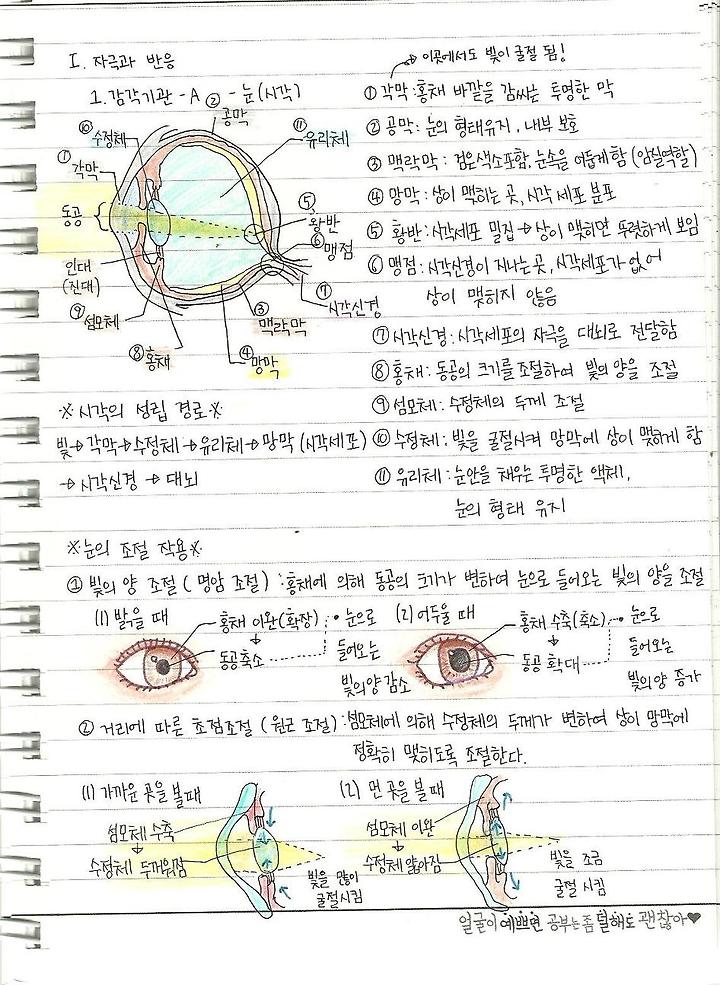 I. 자극과 반응
1. 감각기관 - A - 눈(시각)
② 공막
⑩ 수정체
⑪ 유리체
① 각막
동공
⑤ 황반
⑥ 맹점
인대
(진대)
⑦ 시각신경
⑨ 섬모체
③ 맥락막
⑧ 홍채
④ 망막
→ 이곳에서도 빛이 굴절 됨!
① 각막 : 홍채 바깥을 감싸는 투명한 막
② 공막 : 눈의 형태유지, 내부 보호
③ 맥락막 : 검은색소포함, 눈속을 어둡게 함 (암실역할)
④ 망막 : 상이 맺히는 곳, 시각 세포 분포
⑤ 황반 : 시각세포 밀집 → 상이 맺히면 뚜렷하게 보임
⑥ 맹점 : 시각신경이 지나는 곳, 시각세포가 없어
상이 맺히지 않음
⑦ 시각신경 : 시각세포의 자극을 대뇌로 전달함
⑧ 홍채 : 동공의 크기를 조절하여 빛의 양을 조절
⑨ 섬모체 : 수정체의 두께 조절
⑩ 수정체 : 빛을 굴절시켜 망막에 상이 맺하게 함
⑪ 유리체 : 눈안을 채우는 투명한 액체,
눈의 형태 유지
※ 시각의 성립 경로 ※
빛 → 각막 → 수정체 → 유리체 → 망막 (시각세포)
→ 시각신경 → 대뇌
※ 눈의 조절 작용 ※
① 빛의 양 조절 ( 명암 조절 ) : 홍채에 의해 동공의 크기가 변하여 눈으로 들어오는 빛의 양을 조절
(1) 밝을 때
홍채 이완(확장)
↓
동공축소
• 눈으로
들어오는
빛의양 감소
(2) 어두울 때
홍채 수축(축소)
↓
동공 확대
• 눈으로
들어오는
빛의양 증가
② 거리에 따른 초점조절 ( 원근 조절 ) : 섬모체에 의해 수정체의 두께가 변하여 상이 망막에
정확히 맺히도록 조절한다.
(1) 가까운 곳을 볼때
섬모체 수축
↓
수정체 두꺼워짐
빛을 많이
굴절시킴
(2) 먼 곳을 볼 때
섬모체 이완
↓
수정체 얇아짐
빛을 조금
굴절 시킴
얼굴이 예쁘면 공부는 좀 덜해도 괜찮아♥